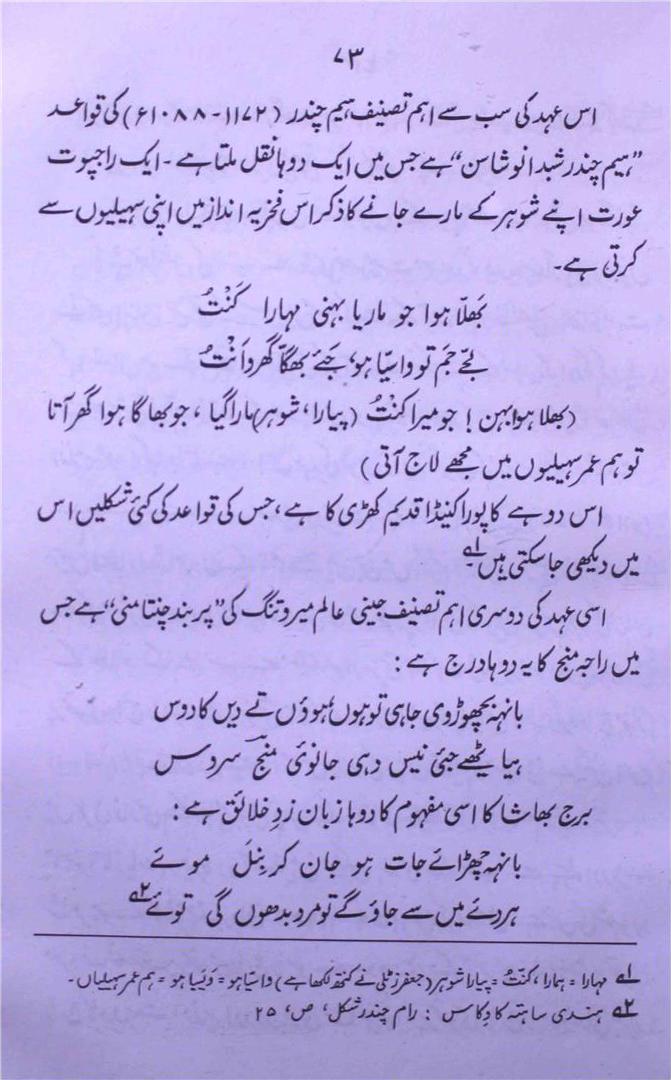 ۷۳
اس عہد کی سب سے اہم تصنیف ہیم چندر (۱۱۷۲-۱۰۸۸ء) کی قواعد
”ہیم چندر شبدانوشاسن“ ہے جس میں ایک دوہا نقل ملتا ہے۔ ایک راجپوت
عورت اپنے شوہر کے مارے جانے کا ذکر اس فخریہ انداز میں اپنی سہیلیوں سے
کرتی ہے۔
بھَلّا ہوا جو ماریا بہنی مہارا کنْتُ
لجّے جَم تو واسیّا ہو، جَئے بھگّا گھر وانْتُ
(بھلا ہوا بہن! جو میرا کنْتُ (پیارا، شوہر) مارا گیا، جو بھاگا ہوا گھر آتا
تو ہم عمر سہیلیوں میں مجھے لاج آتی)
اس دوہے کا پورا کینڈا قدیم کھڑی کا ہے، جس کی قواعد کی کئی شکلیں اس
میں دیکھی جا سکتی ہیں ؎۱
اسی عہد کی دوسری اہم تصنیف جینی عالم میروتنگ کی ”پربندچنتامنی“ ہے جس
میں راجہ منج کا یہ دوہا درج ہے :
بانہہ بچھوڑوی جاہی تو ہوں ہوؤں تے دیں کا دوس
ہیا یٹھے جئی نیس دہی جانوئی منج سردسس
برج بھاشا کا اسی مفہوم کا دوہا زبان زدِ خلائق ہے :
بانہہ چھڑائے جات ہو جان کر نبل موئے
ہردئے میں سے جاؤ گے تو مرد بدھوں گی توئے ؎۲
؎۱ مہارا = ہمارا، کنتُ = پیارا شوہر (جعفر زٹلی نے کنتھ لکھا ہے) واسیّا ہو = وَیسیا ہو = ہم عمر سہیلیاں۔
؎۲ ہندی ساہتہ کا وکاس : رام چندر شکل، ص، ۲۵